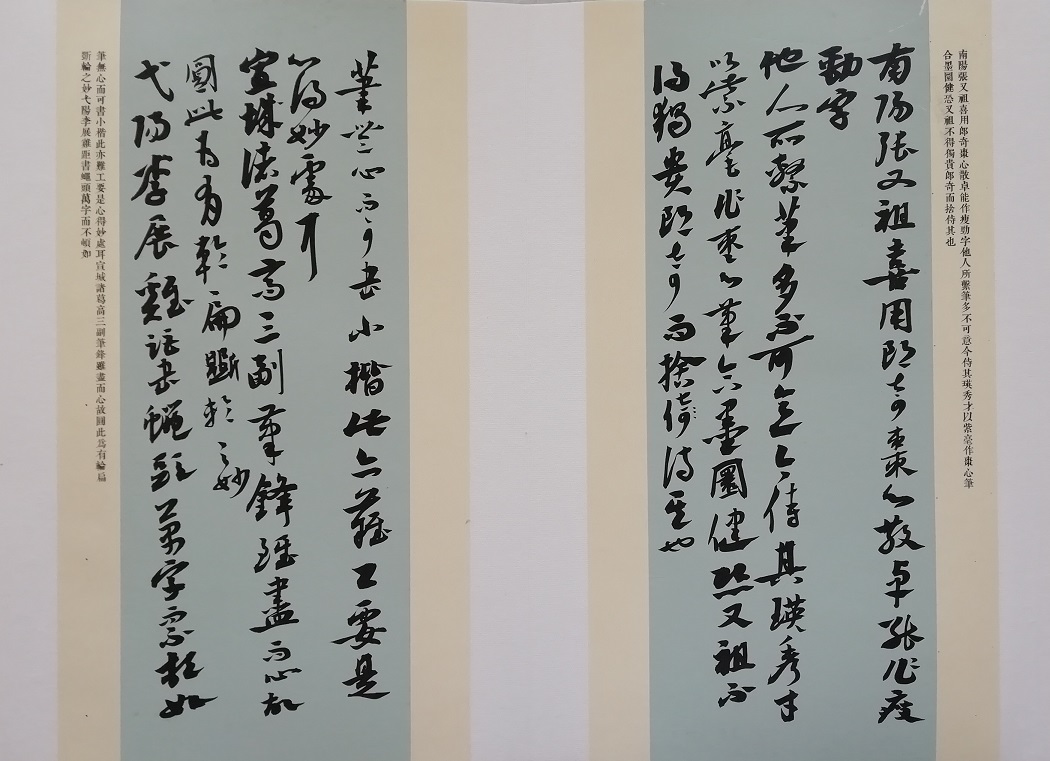 南陽張又祖喜用郎奇棗心散卓能作瘦勁字他人所繫筆多不可意今侍其瑛秀才以紫毫作棗心筆
合墨圓健恐又祖不得獨貴郎奇而捨侍其也
南陽張又祖喜用郎奇棗心散卓能作瘦
勁字
他人所繫筆多不可意今侍其瑛秀才
以紫毫作棗心筆含墨圓健恐又祖不
得獨貴郎奇而捨侍其也
筆無心而可書小楷此亦難工要是
心得妙處耳
宣城諸葛高三副筆鋒雖盡而心故
圓此為有輪扁斲輪之妙
弋陽李展雞距書蠅頭萬字而不頓如
筆無心而可書小楷此亦難工要是心得妙處耳宣城諸葛高三副筆鋒雖盡而心故圓此為有輪扁
斲輪之妙弋陽李展雞距書蠅頭萬字而不頓如